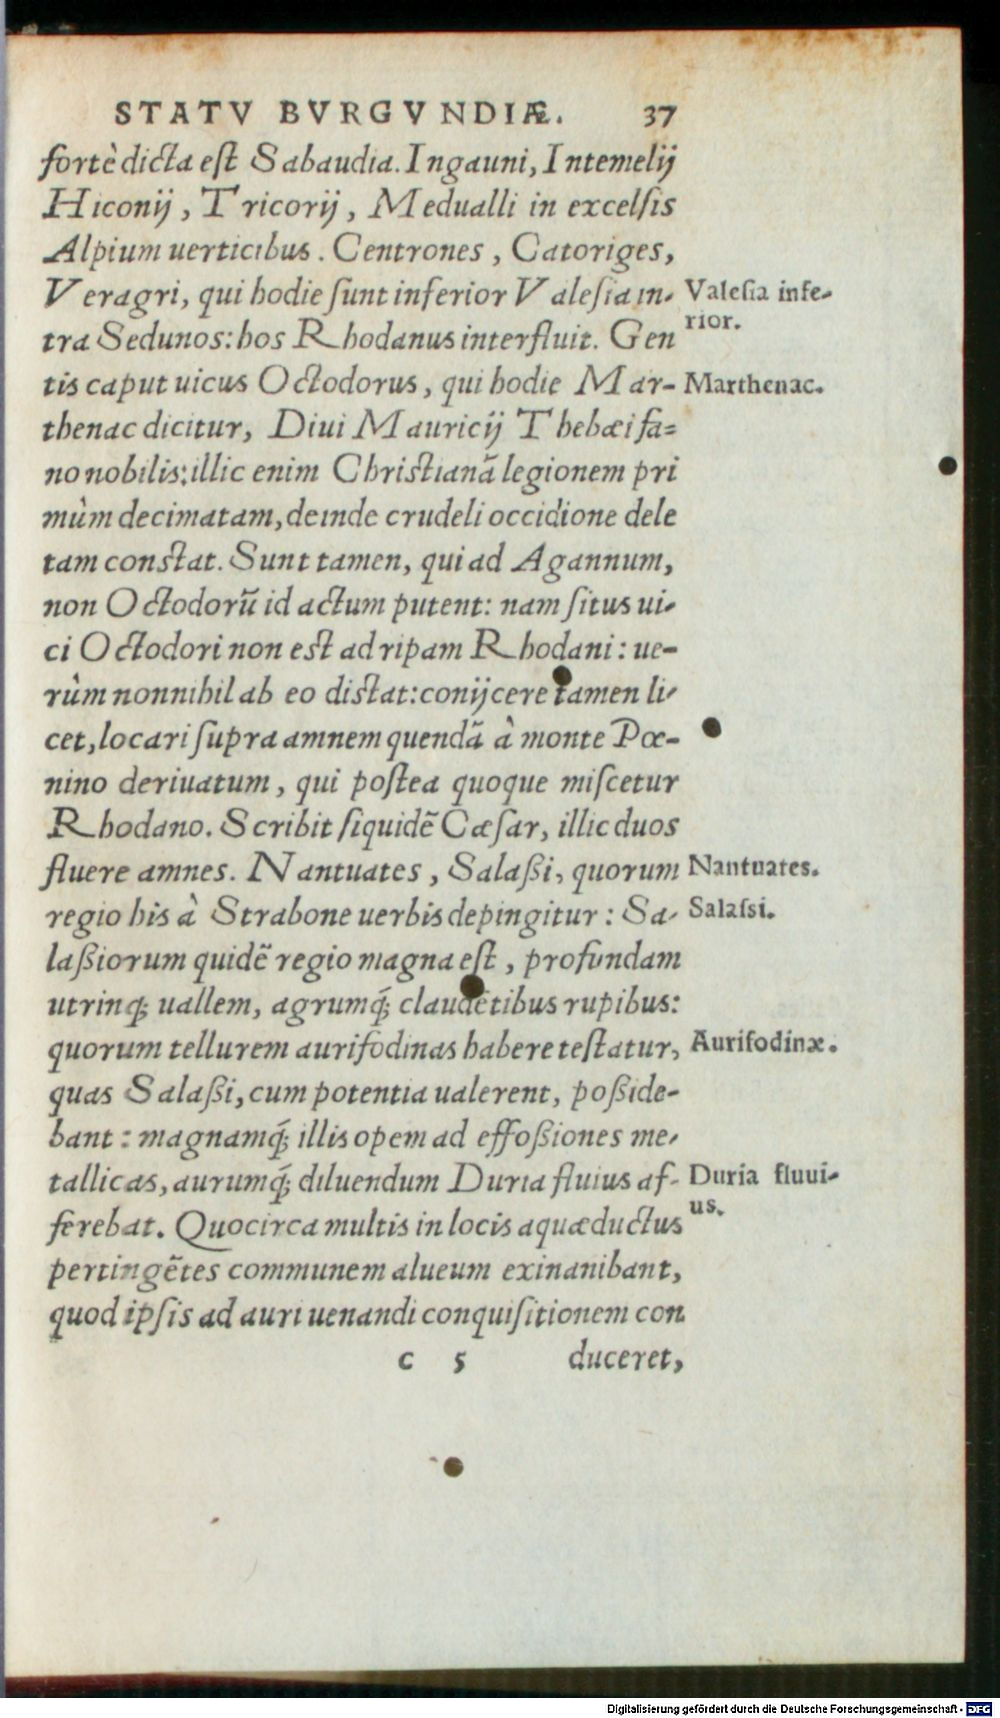 STATV BVRGVNDIÆ. 37
fortè dicta est Sabaudia. Ingauni, Intemelij
Hiconij, Tricorij, Medualli in excelsis
Alpium uerticibus. Centrones, Catoriges,
Veragri, qui hodie sunt inferior Valesia in-
Valesia infe-
rior.
tra Sedunos: hos Rhodanus interfluit. Gen
tis caput uicus Octodorus, qui hodie Mar-
Marthenac.
thenac dicitur, Diui Mauricij Thebæi fa=
no nobilis: illic enim Christianā legionem pri
mùm decimatam, deinde crudeli occidione dele
tam constat. Sunt tamen, qui ad Agannum,
non Octodorū id actum putent: nam situs ui-
ci Octodori non est ad ripam Rhodani: ue-
rùm nonnihil ab eo distat: conijcere tamen li-
cet, locari supra amnem quendā à monte Pœ-
nino deriuatum, qui postea quoque miscetur
Rhodano. Scribit siquidē Cæsar, illic duos
fluere amnes. Nantuates, Salaßi, quorum
Nantuates.
regio his à Strabone uerbis depingitur: Sa-
Salassi.
laßiorum quidē regio magna est, profundam
utrinq; uallem, agrumq́; claudētibus rupibus:
quorum tellurem aurifodinas habere testatur,
Aurifodinæ.
quas Salaßi, cum potentia ualerent, poßide-
bant: magnamq́; illis opem ad effoßiones me-
tallicas, aurumq́; diluendum Duria fluius af-
Duria fluui-
us.
ferebat. Quocirca multis in locis aquæductus
pertingētes communem alueum exinanibant,
quod ipsis ad auri uenandi conquisitionem con
c 5 duceret,
Digitalisierung gefördert durch die Deutsche Forschungsgemeinschaft - DFG